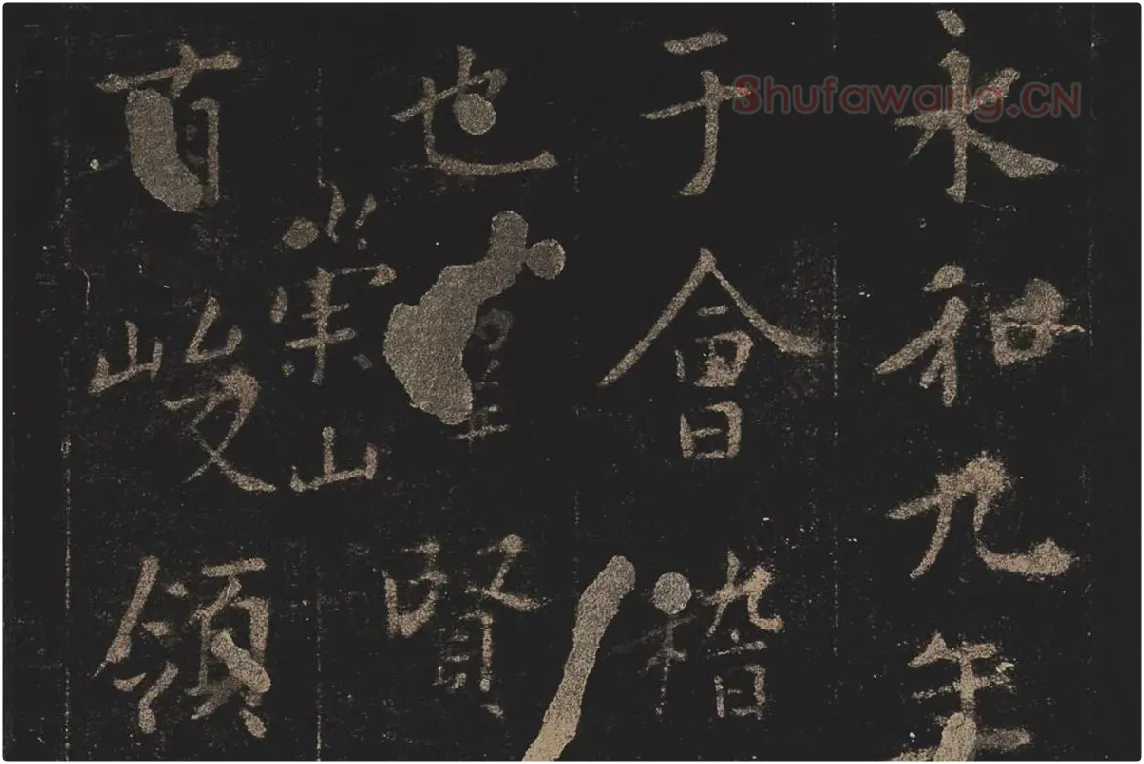 永和九年
于會稽
也羣賢
有崇山峻領
Shufawang.CN